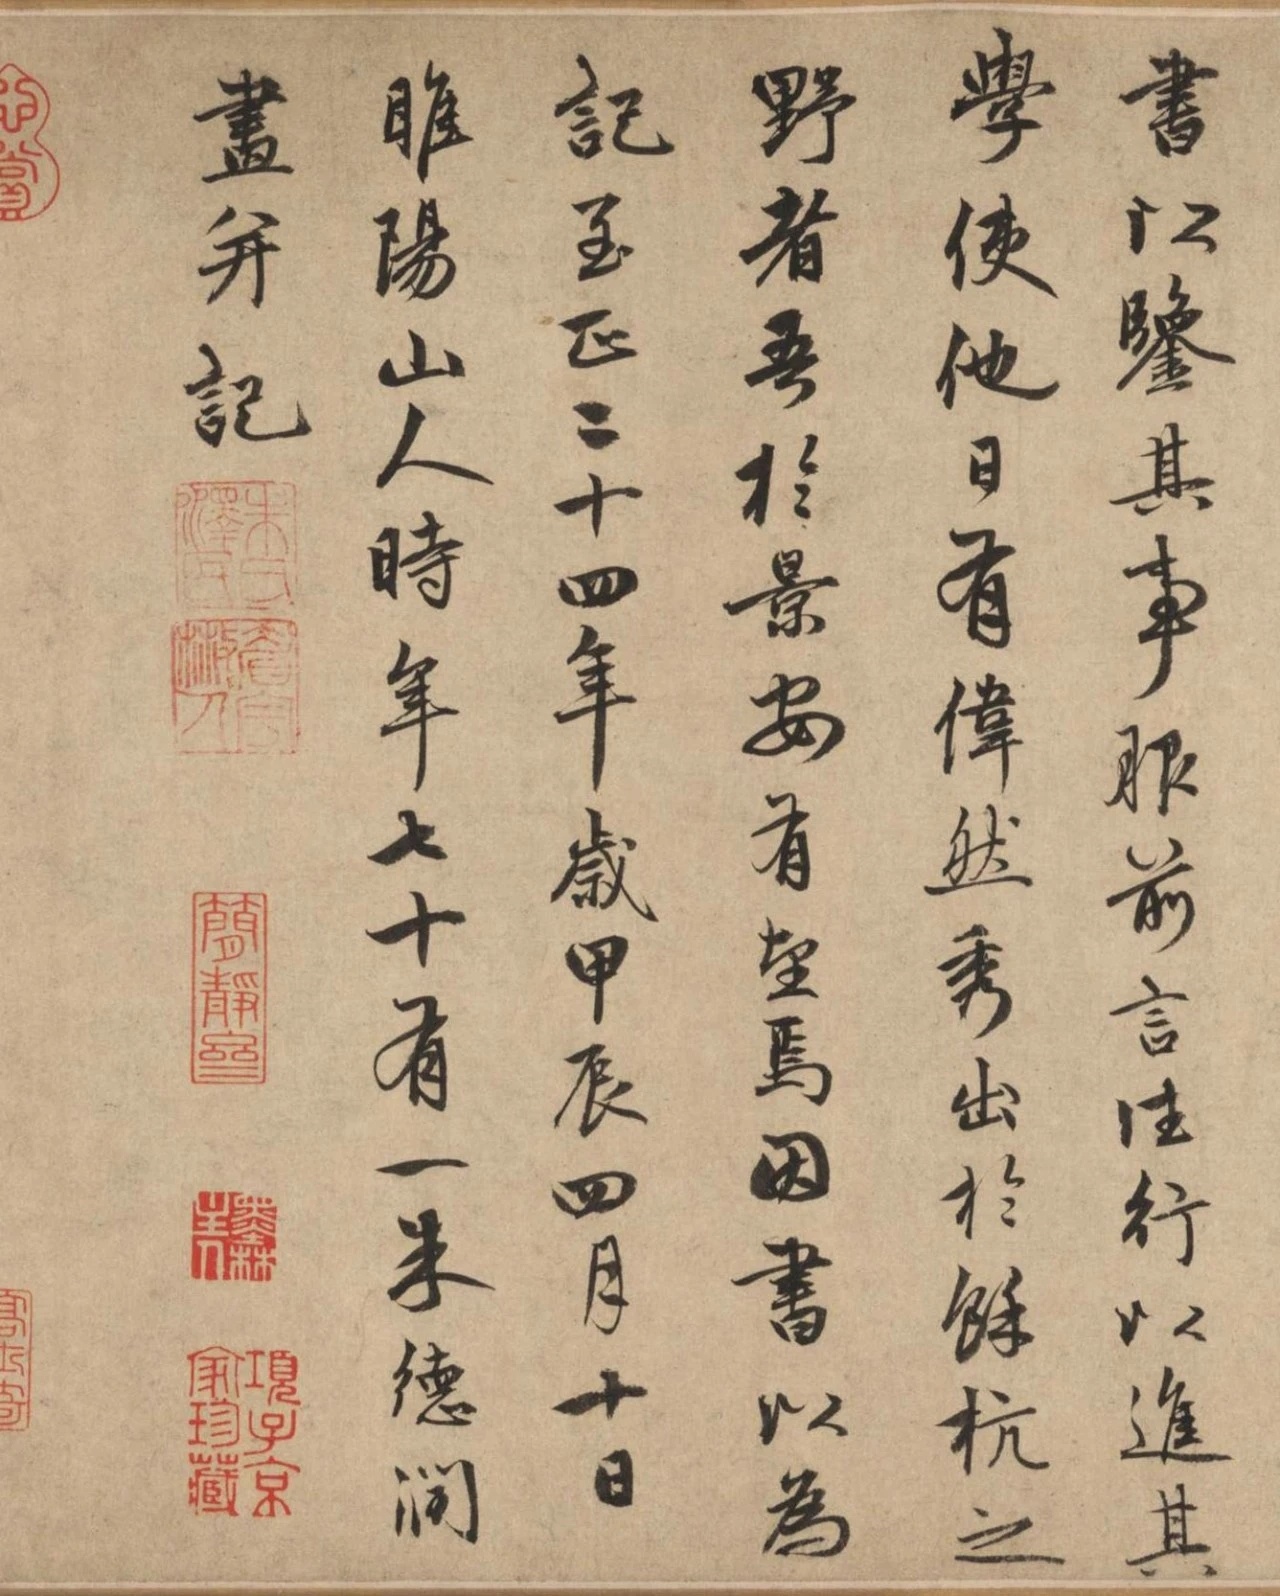 書以鑒其事服前言往行以進其
學使他日有偉然秀出於餘杭之
野者吾於景安有望焉因書以為
記至正二十四年歲甲辰四月十日
睢陽山人時年七十有一朱德潤
畫并記
朱氏澤民
項子京家珍藏